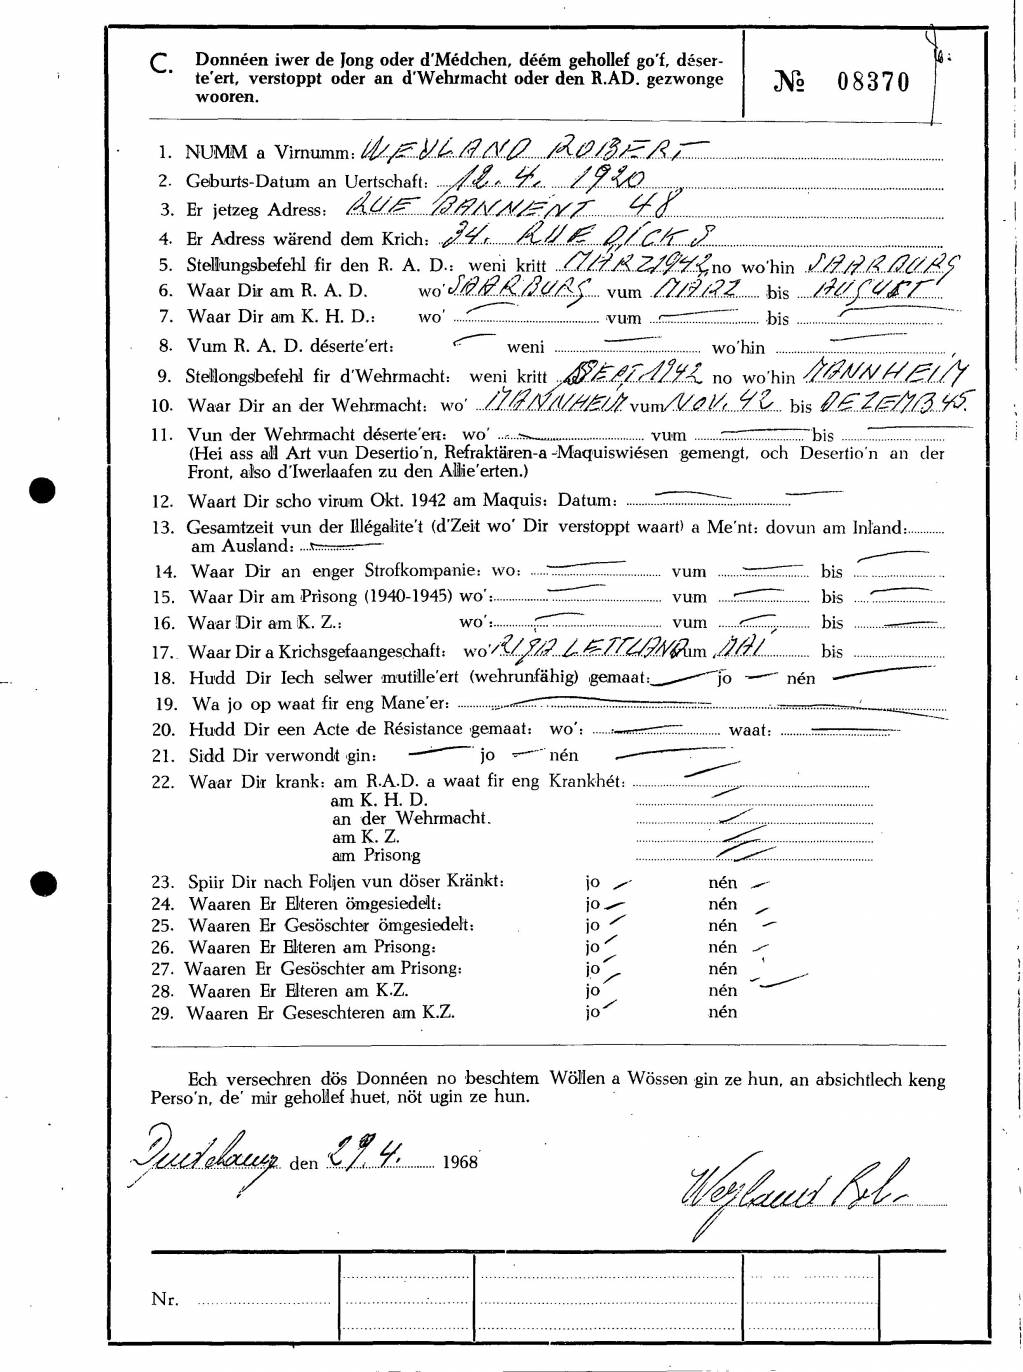 C. Donnéen iwer de Jong oder d'Médchen, déém gehollef go'f, déser-
te'ert, verstoppt oder an d'Wehrmacht oder den R.AD. gezwonge
wooren.
№ 08370
1. NUMM a Virnumm: WEYLAND ROBERT
2. Geburts-Datum an Uertschaft: 12. 4. 1920
3. Er jetzeg Adress: RUE BANNENT 48
4. Er Adress wärend dem Krich: 34. RUE DICKS
5. Stellungsbefehl fir den R. A. D.: weni kritt MÄRZ 1942 no wo'hin SAARBURG
6. Waar Dir am R. A. D. wo' SAARBURG vum MÄRZ bis AUGUST
7. Waar Dir am K. H. D.: wo' vum bis
8. Vum R. A. D. déserte'ert: weni wo'hin
9. Stellongsbefehl fir d'Wehrmacht: weni kritt SEPT. 1942 no wo'hin MANNHEIM
10. Waar Dir an der Wehrmacht: wo' MANNHEIM vum NOV. 42 bis DEZEMB 45.
11. Vun der Wehrmacht déserte'ert: wo' vum bis
(Hei ass all Art vun Desertio'n, Refraktären-a -Maquiswiésen gemengt, och Desertio'n an der
Front, also d'Iwerlaafen zu den Allie'erten.)
12. Waart Dir scho virum Okt. 1942 am Maquis: Datum:
13. Gesamtzeit vun der Illégalite't (d'Zeit wo' Dir verstoppt waart) a Me'nt: dovun am Inland:
am Ausland:
14. Waar Dir an enger Strofkompanie: wo: vum bis
15. Waar Dir am Prisong (1940-1945) wo': vum bis
16. Waar Dir am K. Z.: wo': vum bis
17. Waar Dir a Krichsgefaangeschaft: wo' RIGA LETTLAND vum MAI bis
18. Hudd Dir Iech selwer mutille'ert (wehrunfähig) gemaat: jo nén
19. Wa jo op waat fir eng Mane'er:
20. Hudd Dir een Acte de Résistance gemaat: wo': waat:
21. Sidd Dir verwondt gin: jo nén
22. Waar Dir krank: am R.A.D. a waat fir eng Krankhét:
am K. H. D.
an der Wehrmacht.
am K. Z.
am Prisong
23. Spiir Dir nach Foljen vun döser Kränkt: jo nén
24. Waaren Er Elteren ömgesiedelt: jo nén
25. Waaren Er Gesöschter ömgesiedelt: jo nén
26. Waaren Er Elteren am Prisong: jo nén
27. Waaren Er Gesöschter am Prisong: jo nén
28. Waaren Er Elteren am K.Z. jo nén
29. Waaren Er Geseschteren am K.Z. jo nén
Ech versechren dös Donnéen no beschtem Wöllen a Wössen gin ze hun, an absichtlech keng
Perso'n, de' mir gehollef huet, nöt ugin ze hun.
den 29. 4. 1968
Weyland Rob.
Nr.